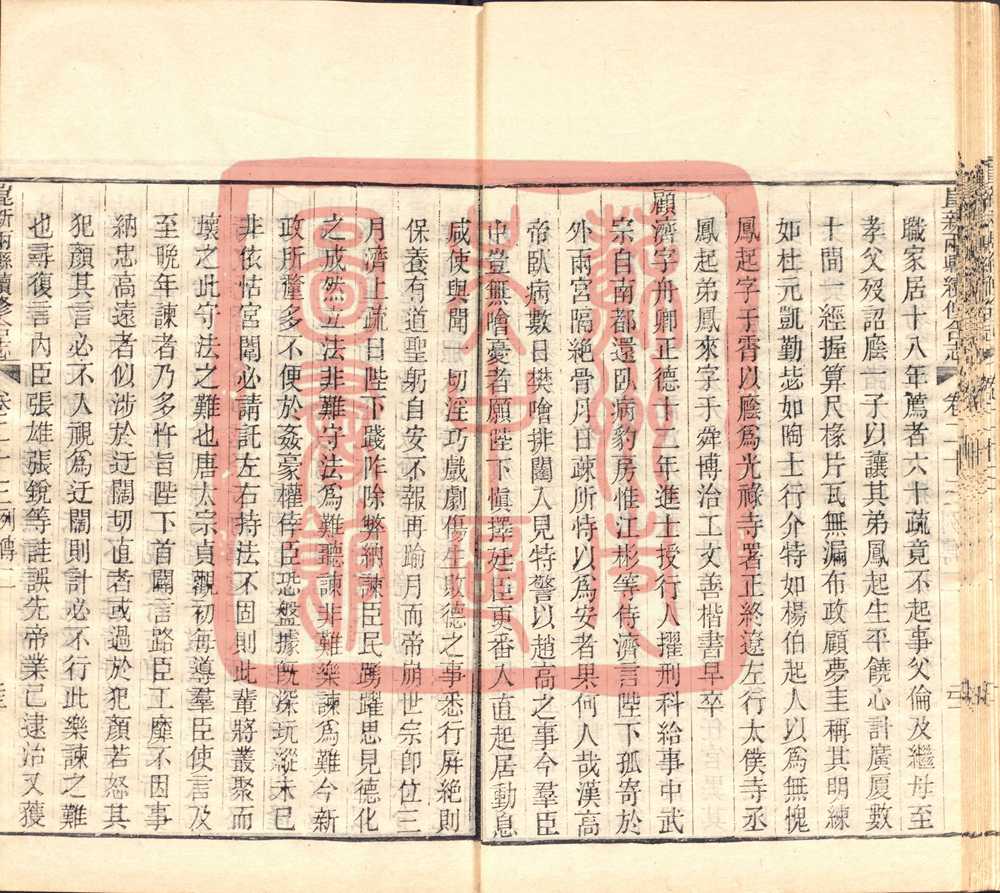 職家居十八年薦者六十疏竟不起事父倫及繼母至
孝父歿詔廕一子以讓其弟鳳起生平饒心計廣厦數
十間一經握算尺椽片瓦無漏布政顧夢圭稱其明練
如杜元凱勤毖如陶士行介特如楊伯起人以爲無愧
鳳起字于霄以廕爲光祿寺署正終遼左行太僕寺丞
鳳起弟鳳來字于舜博治工文善楷書早卒
顧濟字舟卿正德十二年進士授行人擢刑科給事中武
宗自南都還臥病豹房惟江彬等侍濟言陛下孤寄於
外兩宮隔絶骨月日疎所恃以爲安者果何人哉漢高
帝臥病數日樊噲排闥入見特警以趙高之事今羣臣
中豈無噲憂者願陛下慎擇廷臣更番入直起居動息
咸使與聞一切淫巧戲劇傷生敗德之事悉行屏絶則
保養有道聖躬自安不報再踰月而帝崩世宗卽位三
月濟上疏曰陛下踐阼除弊納諫臣民踴躍思見德化
之成然立法非難守法爲難聽諫非難樂諫爲難今新
政所釐多不便於姦豪權倖臣恐盤據旣深玩縱未已
非依怙宮闈必請託左右持法不固則此輩將叢聚而
壞之此守法之難也唐太宗貞觀初每導羣臣使言及
至晚年諫者乃多忤旨陛下首闢言路臣工靡不因事
納忠高遠者似涉於迂闊切直者或過於犯顏若怒其
犯顏其言必不入視爲迂闊則計必不行此樂諫之難
也尋復言內臣張雄張銳等詿誤先帝業已逮治又獲
崑新兩縣續修合志 卷二十三 列傳二